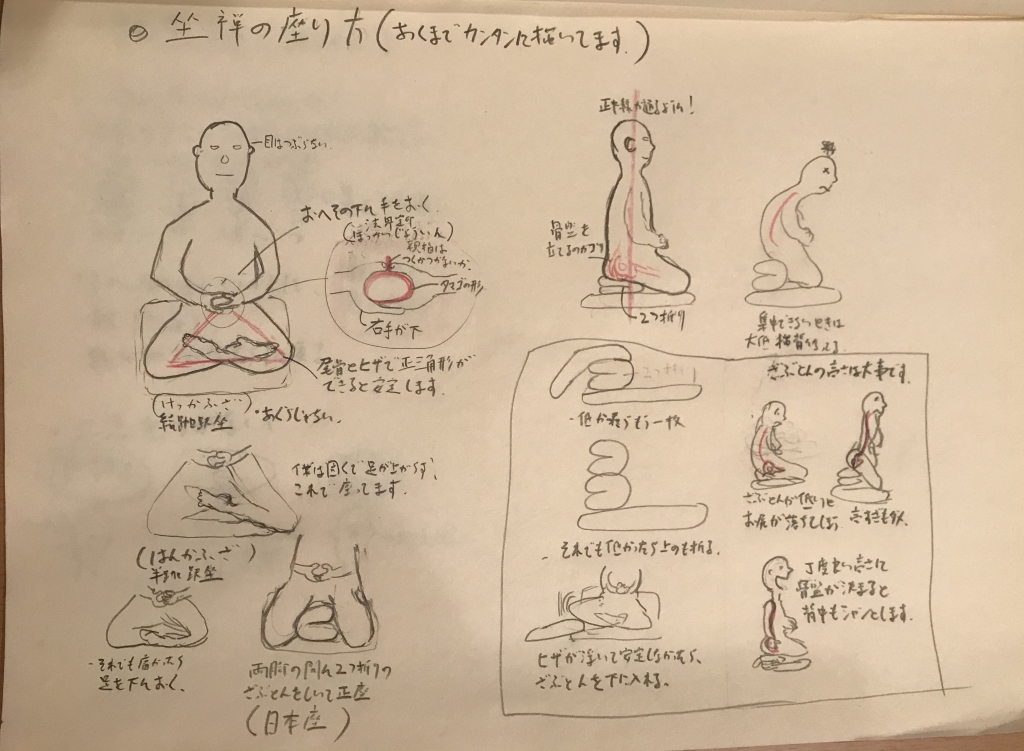 坐禅の座り方(あくまでカンタンに描いてます。)
目はつぶらない
おへその下に手をおく
法界定印
(ほっかいじょういん)
親指は
つくかつかないか
タマゴの形
右手が下
尾骨とヒザで正三角形が
できると安定します。
(けっかふざ)
結跏趺坐
・あぐらじゃない。
僕は固くて足が上がらず、
これで座ってます。
(はんかふざ)
半跏趺坐
・それでも
足を下におく。
両脚の間に2つ折りの
ざぶとんをしいて正座
(日本座)
正中線が通るように!
骨盤を
立てるのがコツ
2つ折り
集中できないときは
大体猫背
ざぶとんの高さは大事です。
2つ折り
・低かったらもう一枚
・それでも低かったら上のも折る。
ヒザが浮いて安定しなかったら、
ざぶとんを下に入れる。
ざぶとんが低いと
お尻が落ちてしまう
高すぎもダメ
丁度良い高さに
骨盤が決まると
背中もシャンとします。